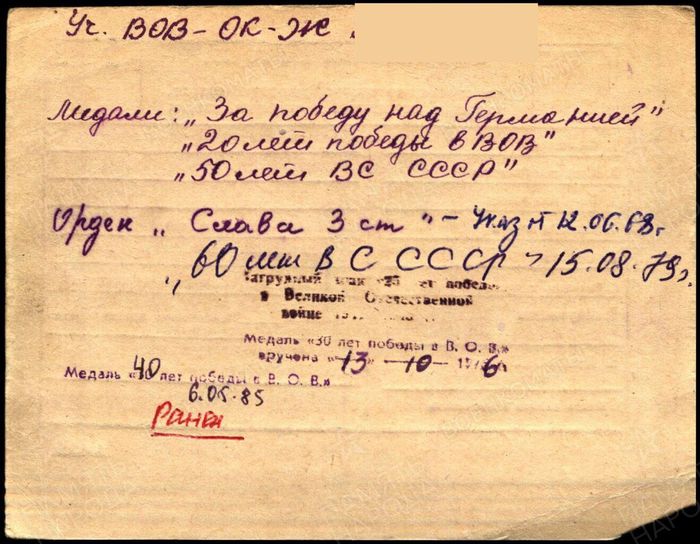 Уч. ВОВ – ОК – Ж.
Медали: „За победу над Германией"
„20 лет победы в ВОВ"
„50 лет ВС СССР"
Орден „Слава 3 ст" – Указ от 12.06.68 г.
„60 лет ВС СССР – 15.08.79 г.
Нагрудный знак «25 лет победы
в Великой Отечественной
войне
Медаль «30 лет победы в В. О. В.»
вручена «13» – 10 – 1976
Медаль «40 лет победы в В. О. В.»
6.05.85
Ранен